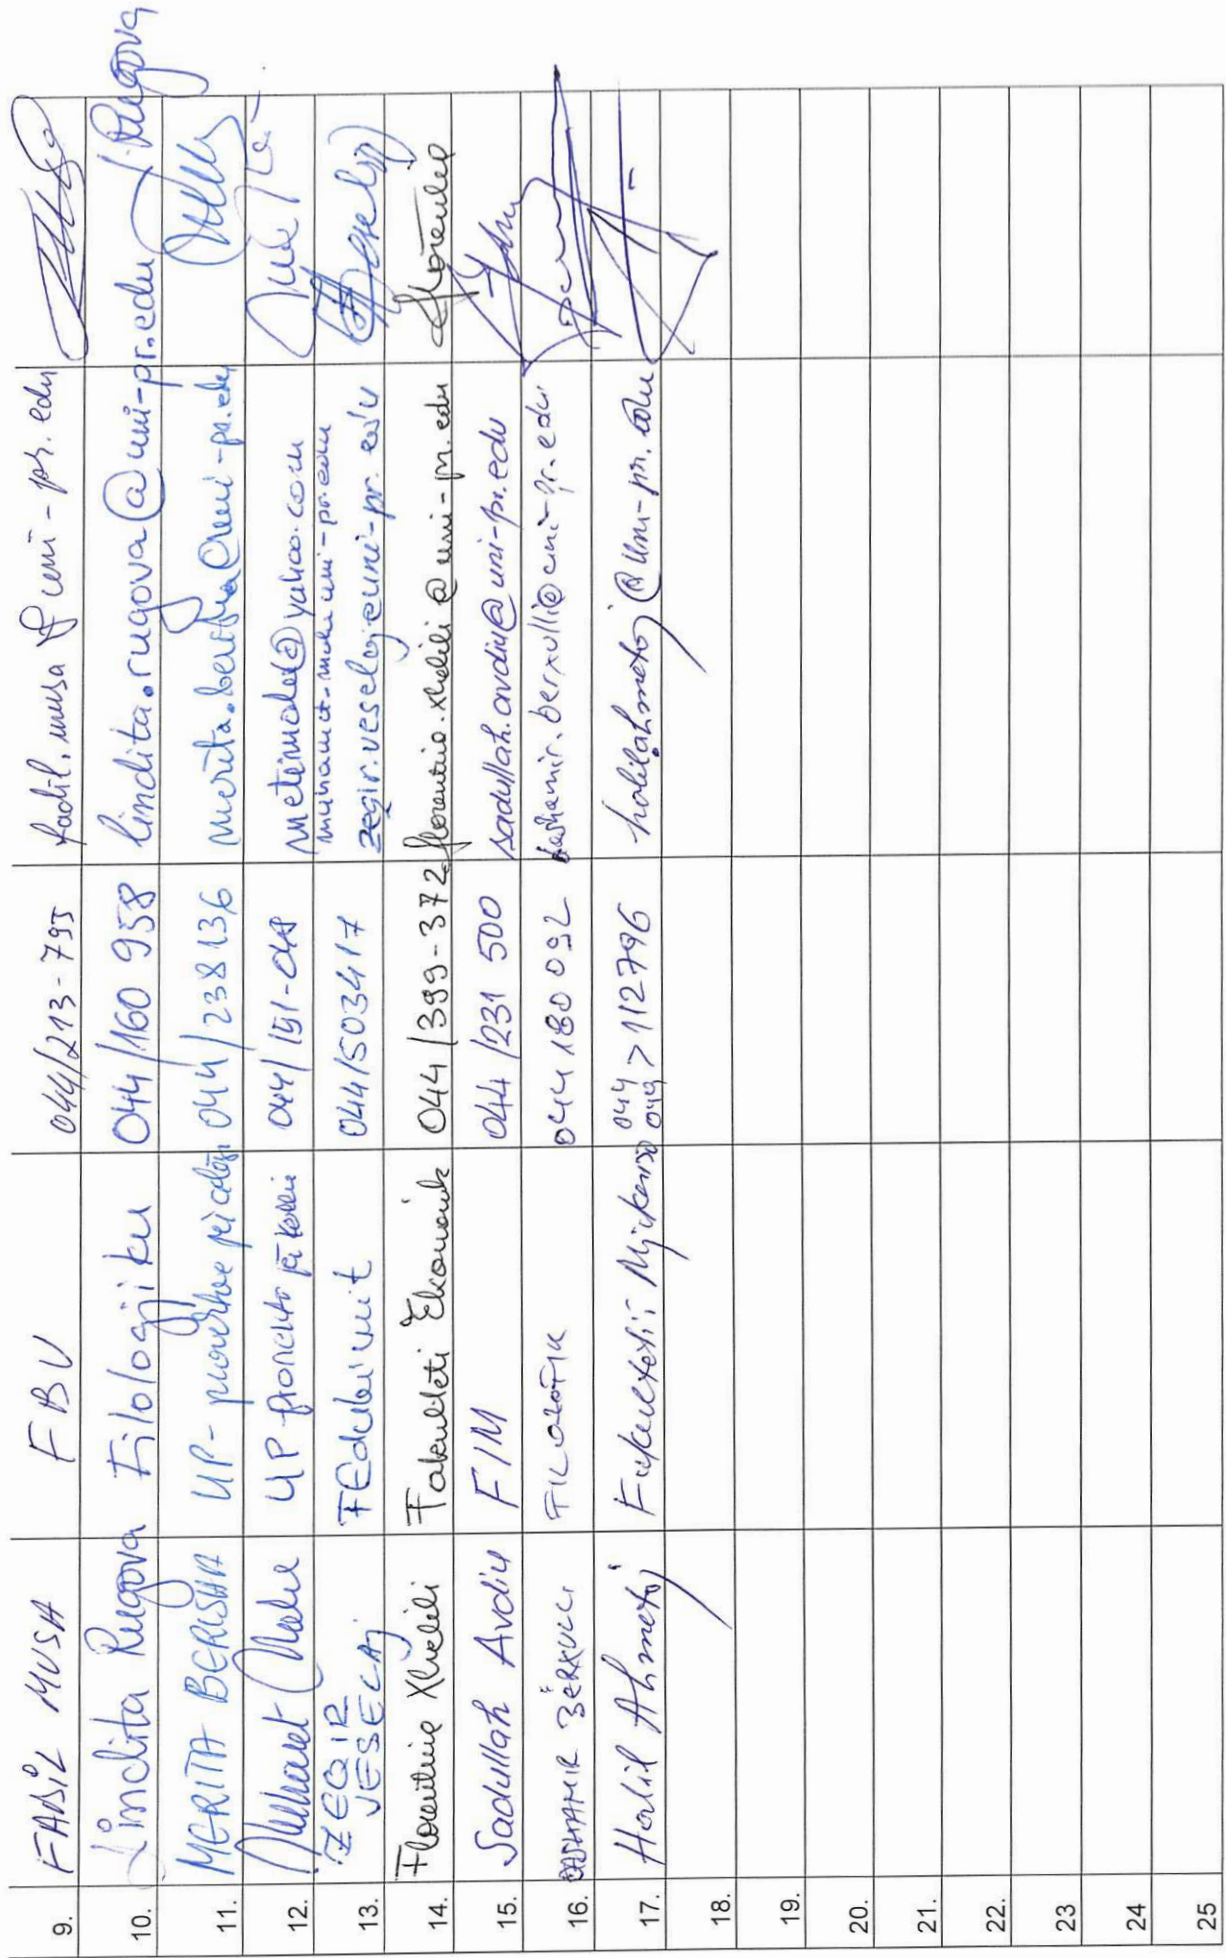 9. FADIL MUSA FBV 044/213-795 fadil.musa@uni-pr.edu
10. Lindita Rugova Filologjiku 044/160 958 lindita.rugova@uni-pr.edu L.Rugova
11. MERITA BERISHA UP- 044/238136 merita.berisha@uni-pr.edu
12. Muhamet UP 044/151-048 metimala@yahoo.com
13. ZEQIR VESELAJ FEdukimit 044/503417 zeqir.veselaj@uni-pr.edu
14. Florentina Xhelili Fakulteti Ekonomik 044/399-372 florentina.xhelili@uni-pr.edu
15. Sadullah Avdiu FIM 044/231 500 sadullah.avdiu@uni-pr.edu
16. DASHAMIR BËRXULLI FILOZOFIK 044 180 092 dashamir.berxulli@uni-pr.edu
17. Halil Ahmetaj Fakulteti i Mjekesise 044 049 > 112796 halil.ahmetaj@uni-pr.edu
18.
19.
20.
21.
22.
23
24
25